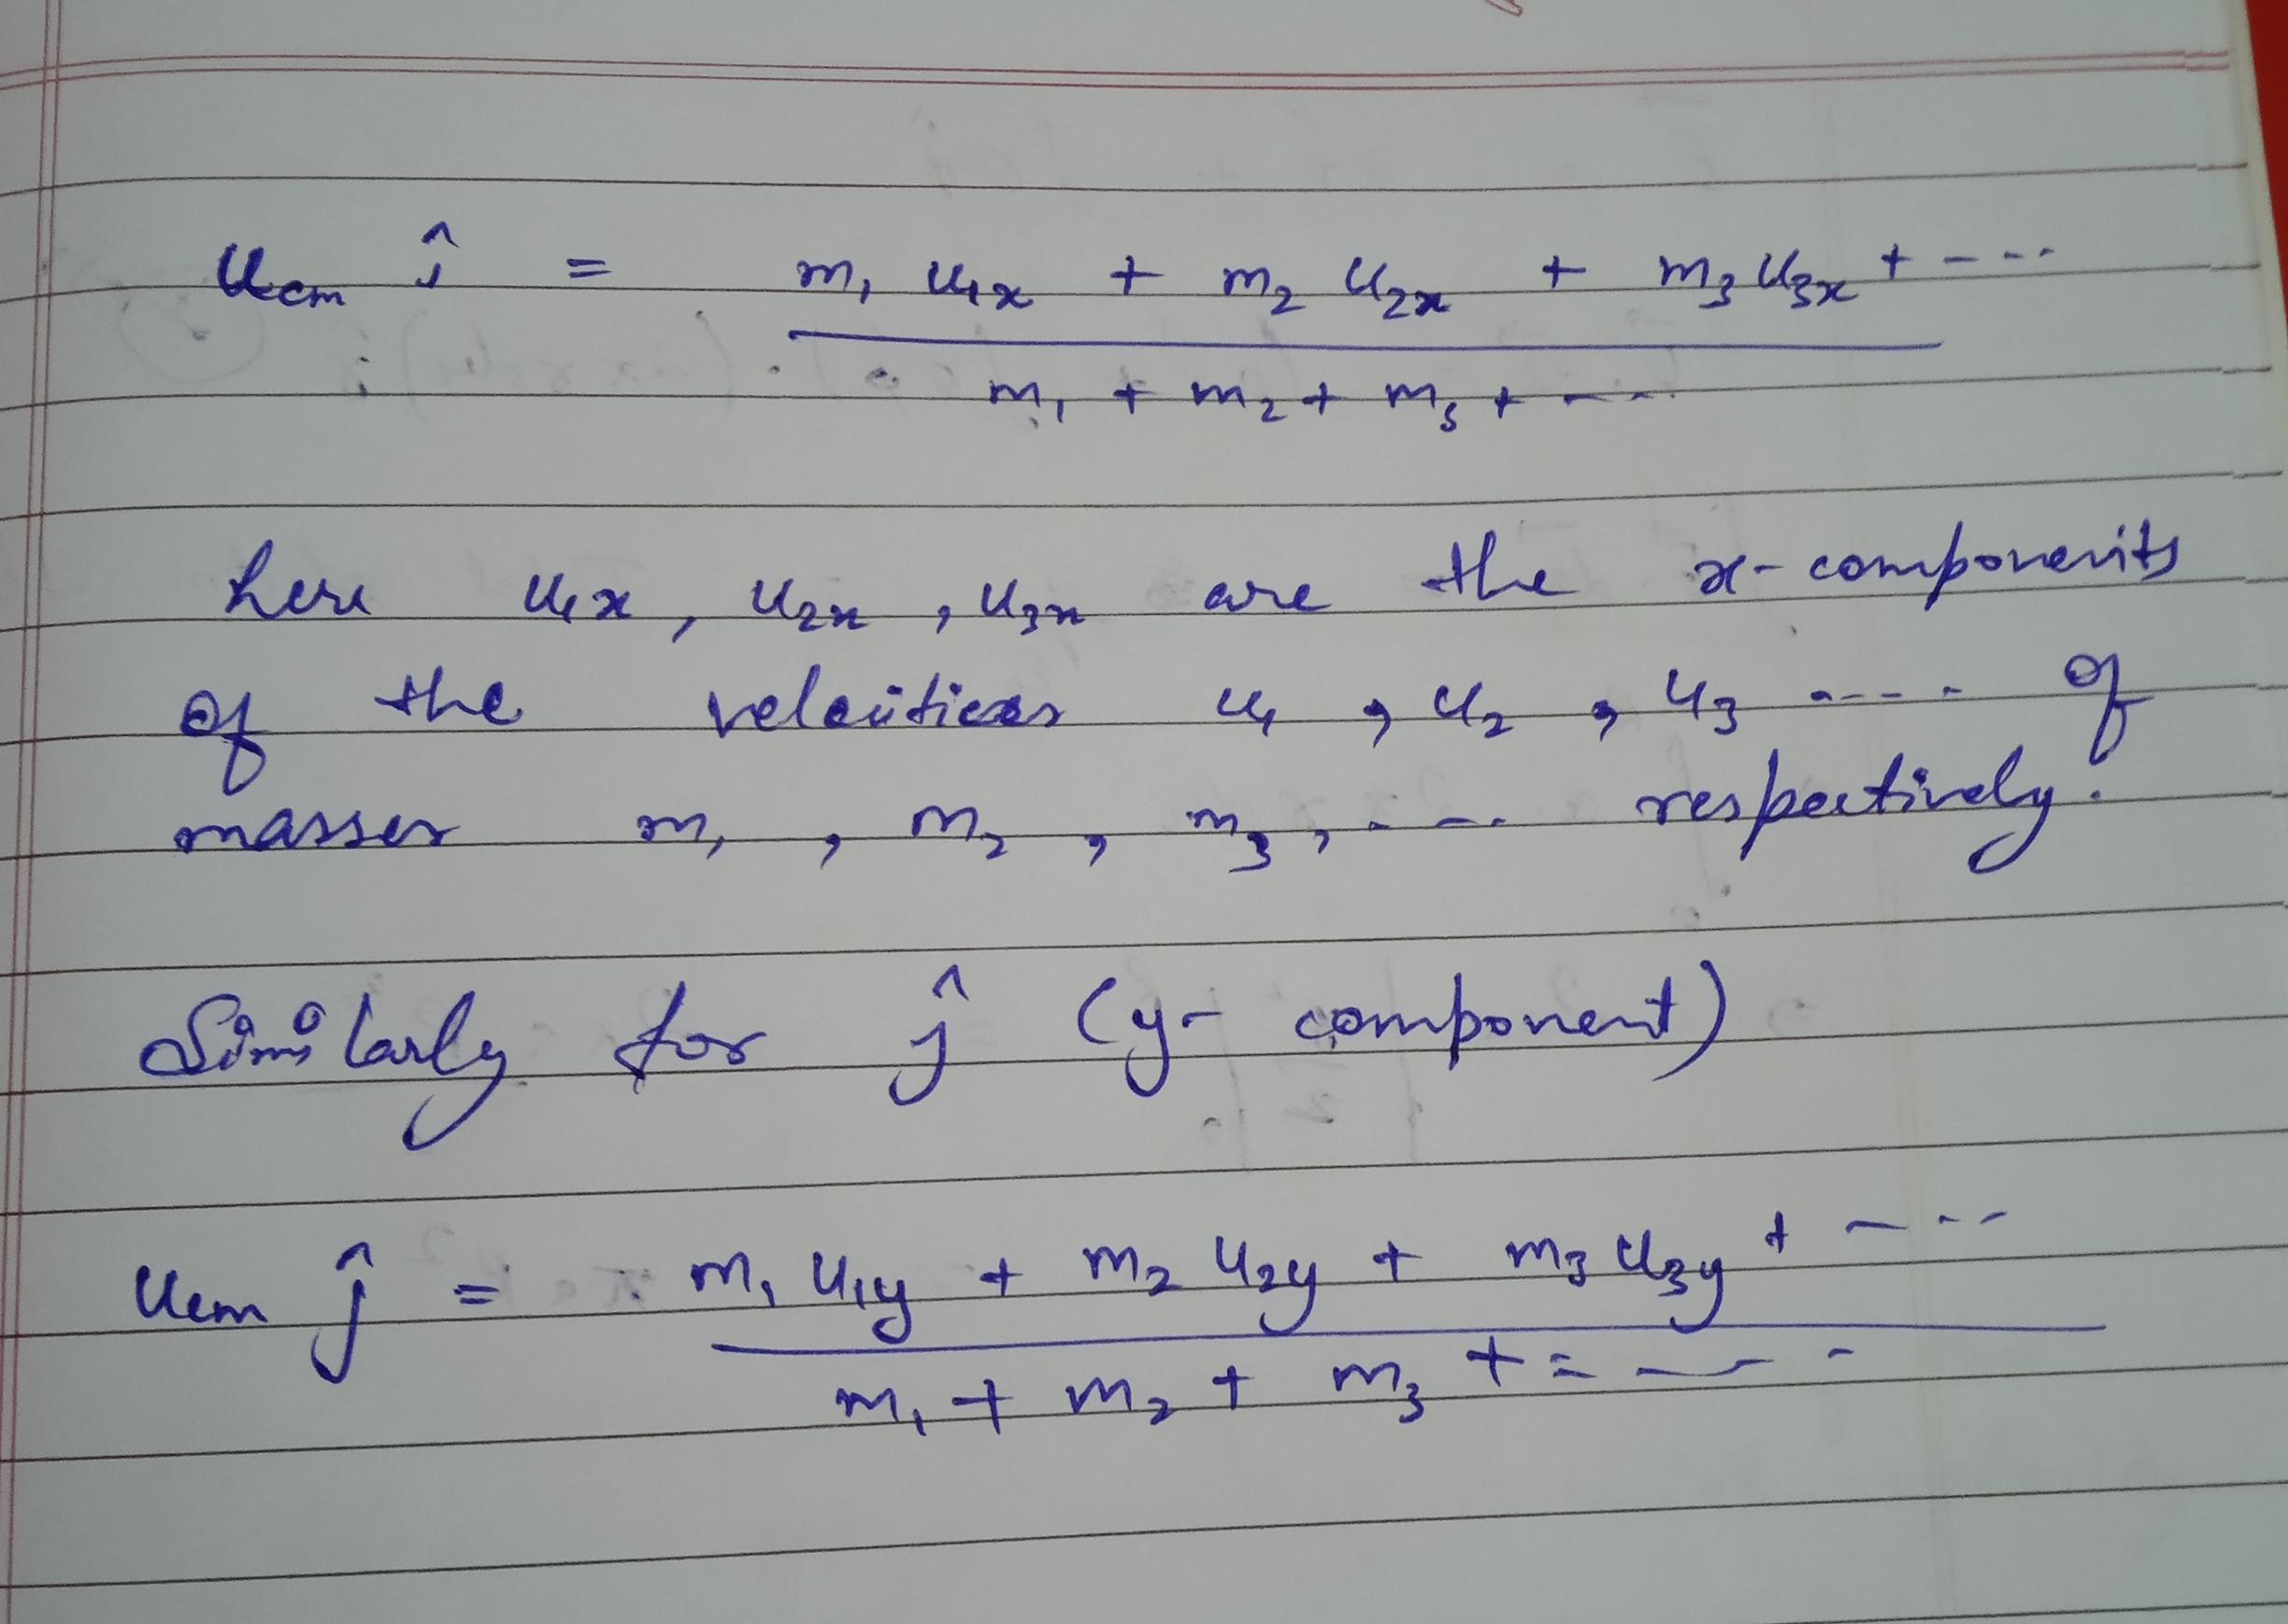 u_cm î = m₁ u₁ₓ + m₂ u₂ₓ + m₃ u₃ₓ + ----
m₁ + m₂ + m₃ + ----
here u₁ₓ, u₂ₓ, u₃ₓ are the x-components
of the velocities u₁, u₂, u₃ ---- of
masses m₁, m₂, m₃, ---- respectively.
Similarly for ĵ (y-component)
u_cm ĵ = m₁ u₁y + m₂ u₂y + m₃ u₃y + ----
m₁ + m₂ + m₃ + ----